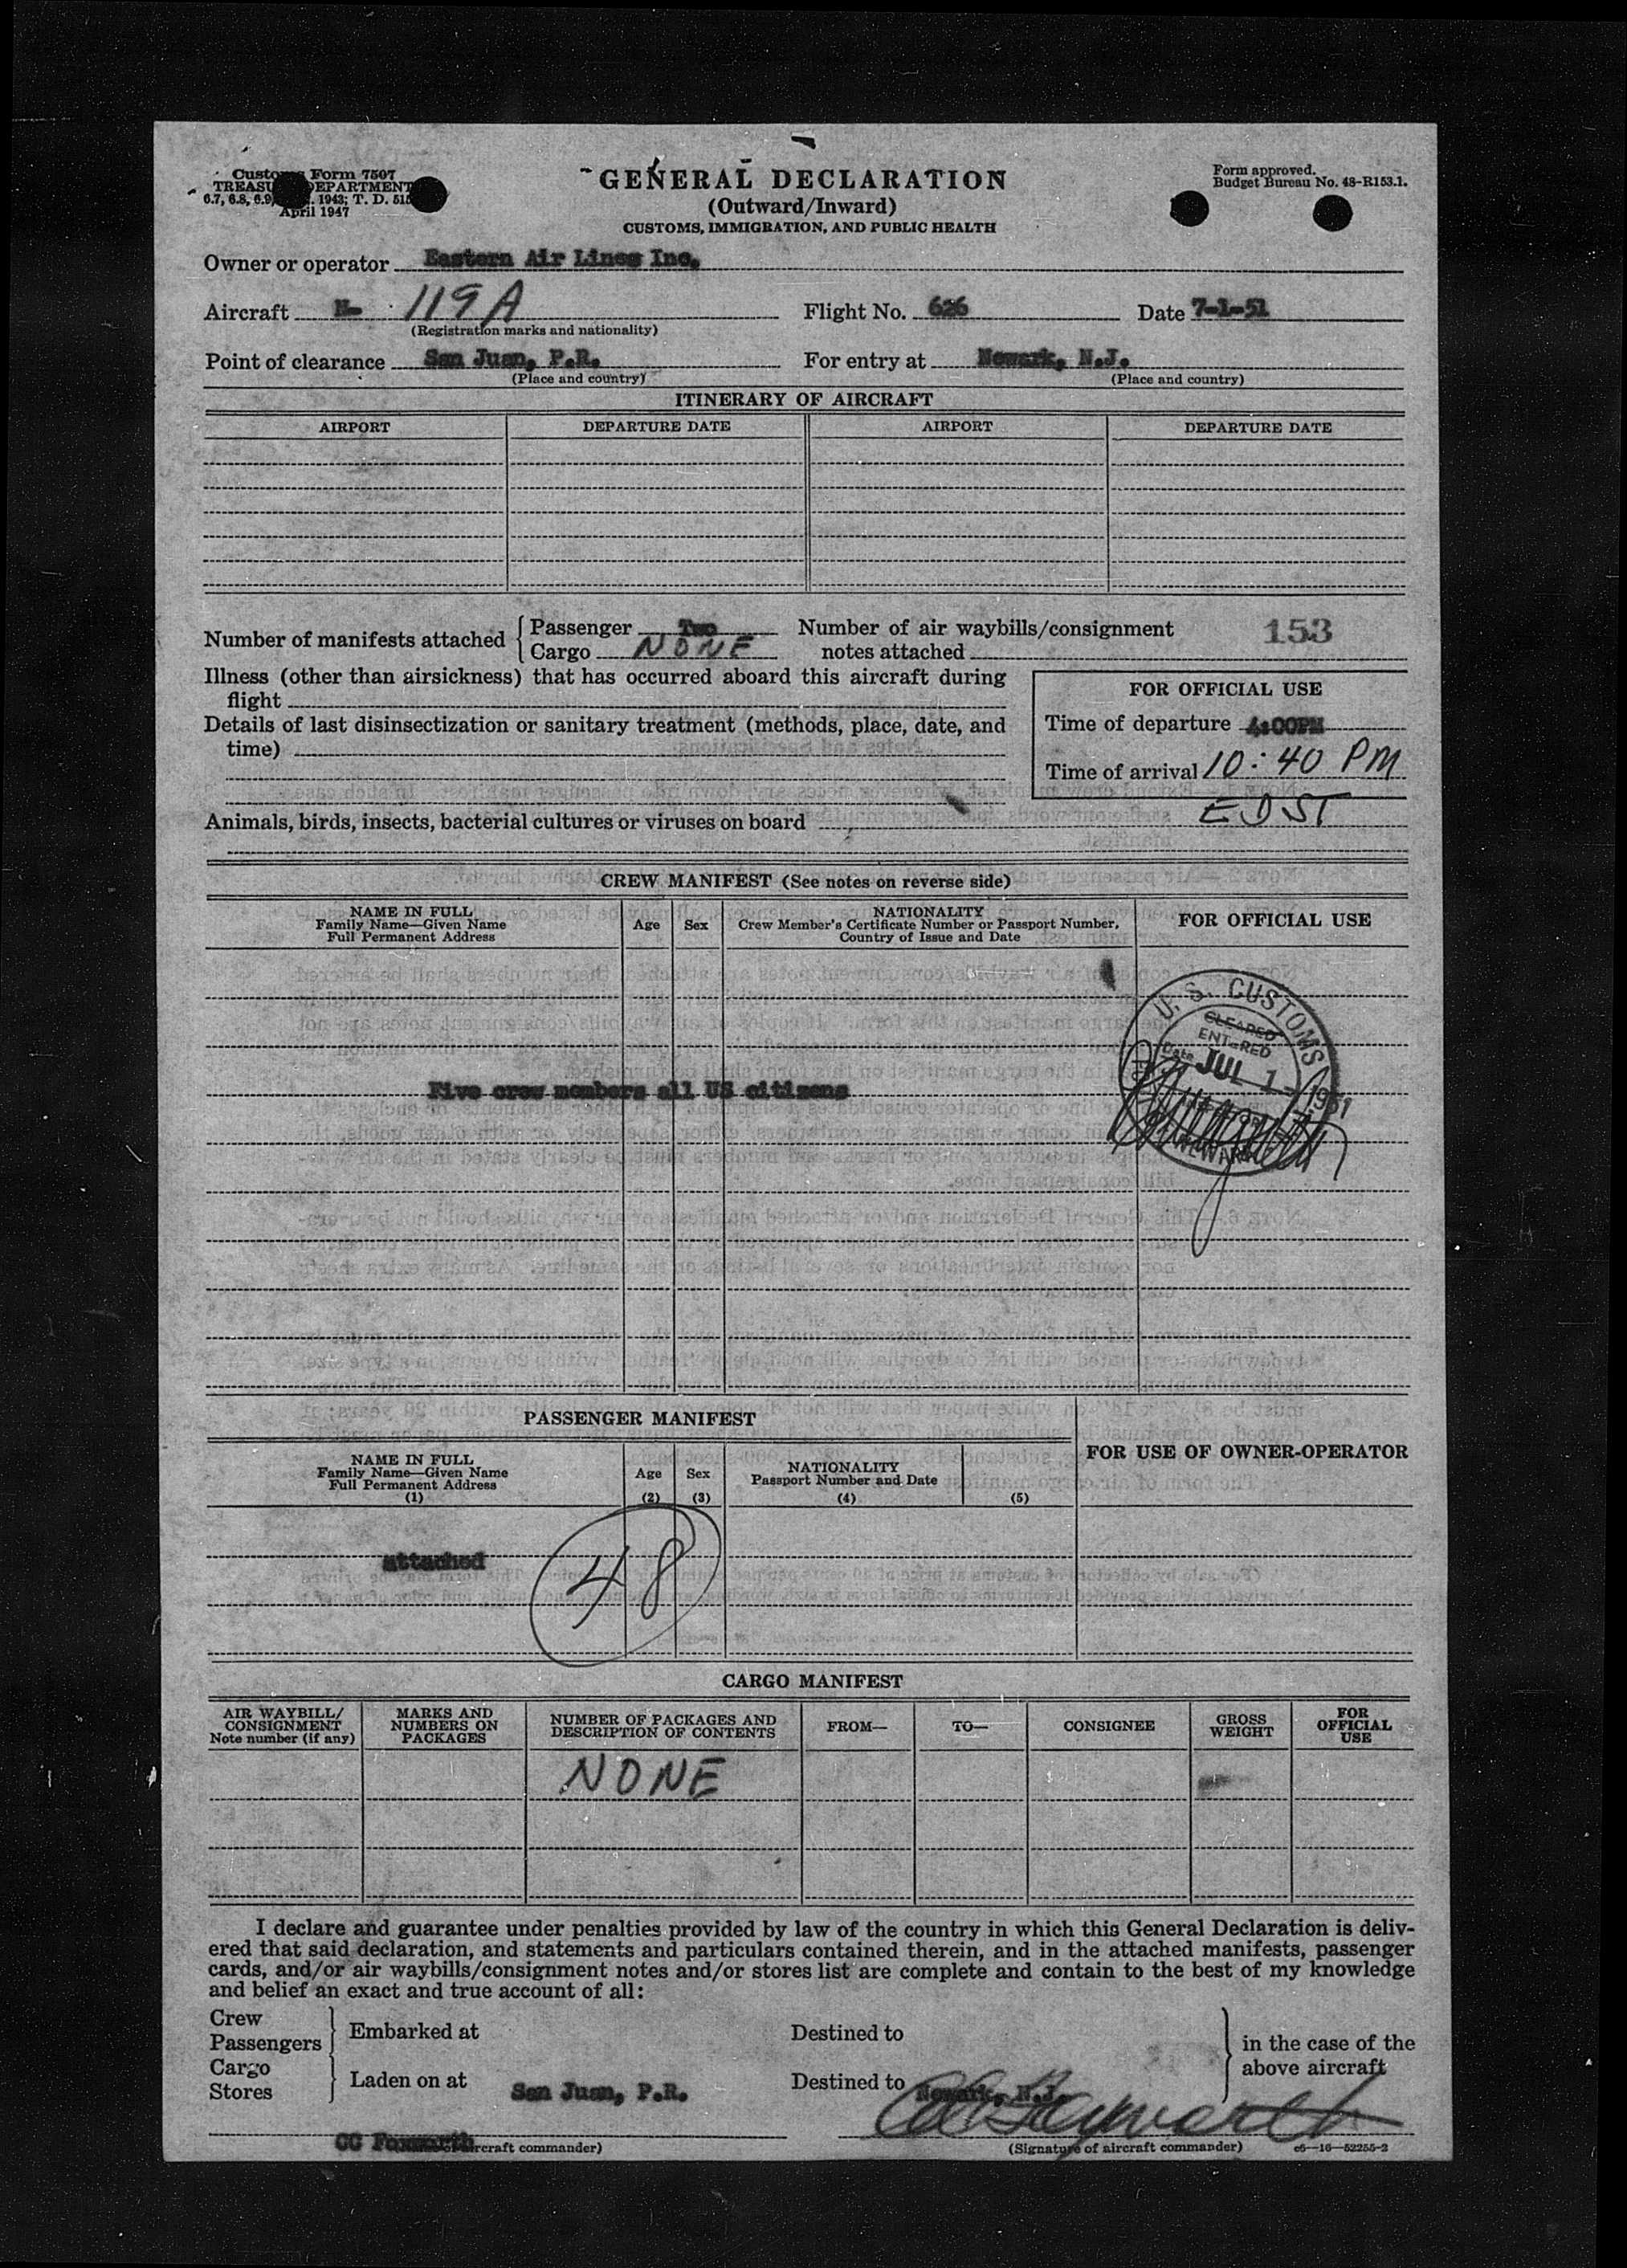 Customs Form 7507
TREASURY DEPARTMENT
6.7, 6.8, 6.9, 1943; T. D. 515
April 1947
GENERAL DECLARATION
(Outward/Inward)
CUSTOMS, IMMIGRATION, AND PUBLIC HEALTH
Form approved.
Budget Bureau No. 48-R153.1.
Owner or operator Eastern Air Lines Inc.
Aircraft N- 119A Flight No. 626 Date 7-1-51
(Registration marks and nationality)
Point of clearance San Juan, P.R. For entry at Newark, N.J.
(Place and country) (Place and country)
ITINERARY OF AIRCRAFT
AIRPORT DEPARTURE DATE AIRPORT DEPARTURE DATE
Number of manifests attached Passenger Two Cargo NONE
Number of air waybills/consignment notes attached 153
Illness (other than airsickness) that has occurred aboard this aircraft during
flight
Details of last disinsectization or sanitary treatment (methods, place, date, and
time)
FOR OFFICIAL USE
Time of departure 4:00PM
Time of arrival 10:40 PM
EDST
Animals, birds, insects, bacterial cultures or viruses on board
CREW MANIFEST (See notes on reverse side)
NAME IN FULL
Family Name—Given Name
Full Permanent Address
Age
Sex
NATIONALITY
Crew Member's Certificate Number or Passport Number,
Country of Issue and Date
FOR OFFICIAL USE
U. S. CUSTOMS
CLEARED
ENTERED
Date JUL 1 - 1951
NEWARK
Five crew members all US citizens
PASSENGER MANIFEST
NAME IN FULL
Family Name—Given Name
Full Permanent Address
(1)
Age
(2)
Sex
(3)
NATIONALITY
Passport Number and Date
(4) (5)
FOR USE OF OWNER-OPERATOR
attached 48
CARGO MANIFEST
AIR WAYBILL/
CONSIGNMENT
Note number (if any)
MARKS AND
NUMBERS ON
PACKAGES
NUMBER OF PACKAGES AND
DESCRIPTION OF CONTENTS
FROM—
TO—
CONSIGNEE
GROSS
WEIGHT
FOR
OFFICIAL
USE
NONE
I declare and guarantee under penalties provided by law of the country in which this General Declaration is deliv-
ered that said declaration, and statements and particulars contained therein, and in the attached manifests, passenger
cards, and/or air waybills/consignment notes and/or stores list are complete and contain to the best of my knowledge
and belief an exact and true account of all:
Crew
Passengers
Embarked at Destined to
Cargo
Stores
Laden on at San Juan, P.R. Destined to Newark, N.J.
in the case of the
above aircraft
CC Foxworth
aircraft commander)
(Signature of aircraft commander) c6—16—52255-2